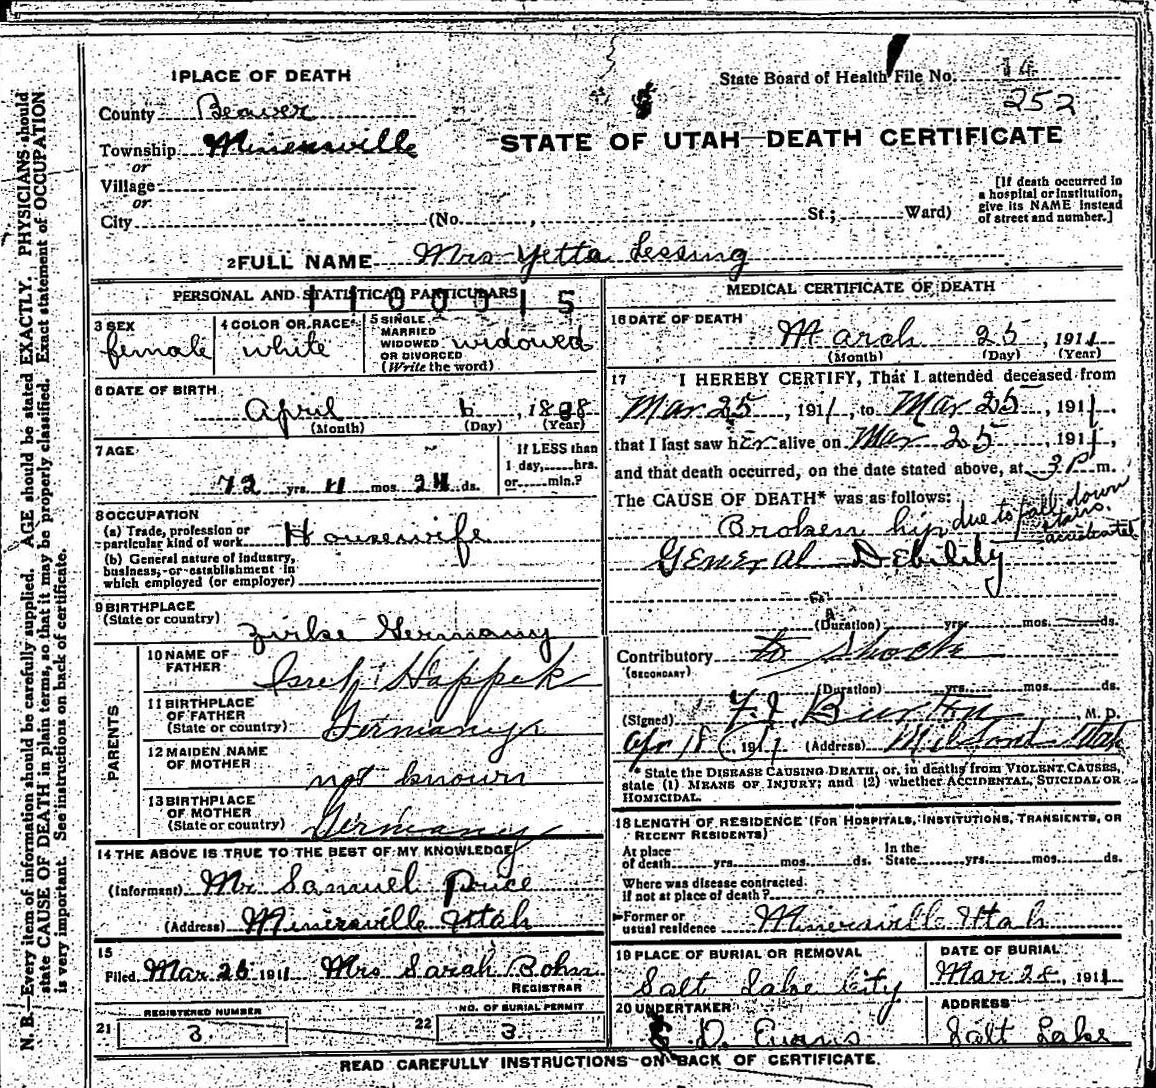 1 PLACE OF DEATH
State Board of Health File No. 14
252
County Beaver
Township Minersville
or
Village
or
City (No. , St.; Ward)
STATE OF UTAH—DEATH CERTIFICATE
[If death occurred in a hospital or institution, give its NAME instead of street and number.]
2 FULL NAME Mrs Yetta Lessing
PERSONAL AND STATISTICAL PARTICULARS
1100915
3 SEX
female
4 COLOR OR RACE
white
5 SINGLE
MARRIED
WIDOWED
OR DIVORCED
(Write the word)
widowed
6 DATE OF BIRTH
April 6, 18
(Month) (Day) (Year)
7 AGE
72 yrs. 11 mos. ds.
If LESS than
1 day, hrs.
or min.?
8 OCCUPATION
(a) Trade, profession or
particular kind of work Housewife
(b) General nature of industry,
business, or establishment in
which employed (or employer)
9 BIRTHPLACE
(State or country)
Zirke Germany
PARENTS
10 NAME OF
FATHER
Happek
11 BIRTHPLACE
OF FATHER
(State or country)
Germany
12 MAIDEN NAME
OF MOTHER
not known
13 BIRTHPLACE
OF MOTHER
(State or country)
Germany
14 THE ABOVE IS TRUE TO THE BEST OF MY KNOWLEDGE
(Informant) Mr Samuel Price
(Address) Minersville Utah
15
Filed Mar 26 1911 Mrs Sarah Bohn
REGISTRAR
REGISTERED NUMBER
21 3
NO. OF BURIAL PERMIT
22 3
MEDICAL CERTIFICATE OF DEATH
16 DATE OF DEATH
March 25, 1911
(Month) (Day) (Year)
17 I HEREBY CERTIFY, That I attended deceased from
Mar 25, 1911, to Mar 25, 1911,
that I last saw her alive on Mar 25, 1911,
and that death occurred, on the date stated above, at 3 P m.
The CAUSE OF DEATH* was as follows:
Broken hip due to fall down stairs. accidental
General Debility
(Duration) yrs. mos. ds.
Contributory to Shock
(SECONDARY)
(Duration) yrs. mos. ds.
(Signed) F. J. Burton, M. D.
Apr 18 1911 (Address) Milford Utah
* State the DISEASE CAUSING DEATH, or, in deaths from VIOLENT CAUSES,
state (1) MEANS OF INJURY; and (2) whether ACCIDENTAL, SUICIDAL OR
HOMICIDAL.
18 LENGTH OF RESIDENCE (FOR HOSPITALS, INSTITUTIONS, TRANSIENTS, OR
RECENT RESIDENTS)
At place
of death yrs. mos. ds.
In the
State yrs. mos. ds.
Where was disease contracted
if not at place of death?
Former or
usual residence Minersville Utah
19 PLACE OF BURIAL OR REMOVAL
Salt Lake City
DATE OF BURIAL
Mar 28, 1911
20 UNDERTAKER
D. Evans
ADDRESS
Salt Lake
READ CAREFULLY INSTRUCTIONS ON BACK OF CERTIFICATE.
N. B.—Every item of information should be carefully supplied. AGE should be stated EXACTLY. PHYSICIANS should
state CAUSE OF DEATH in plain terms, so that it may be properly classified. Exact statement of OCCUPATION
is very important. See instructions on back of certificate.